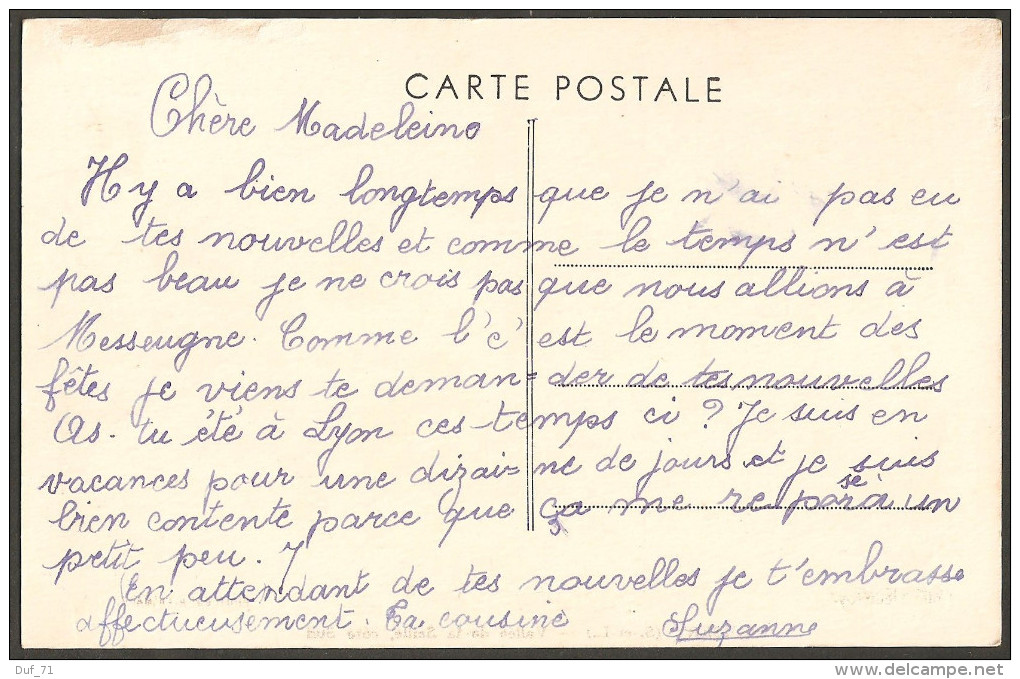 CARTE POSTALE
Chère Madeleine
Il y a bien longtemps que je n'ai pas eu
de tes nouvelles et comme le temps n'est
pas beau je ne crois pas que nous allions à
Messeugne. Comme l'c'est le moment des
fêtes je viens te deman=der de tes nouvelles
As-tu été à Lyon ces-temps ci ? Je suis en
vacances pour une dizai-ne de jours et je suis
se
bien contente parce que ça me re para un
petit peu.
En attendant de tes nouvelles je t'embrasse
affectueusement. Ta cousine Suzanne
Duf_71
www.delcampe.net